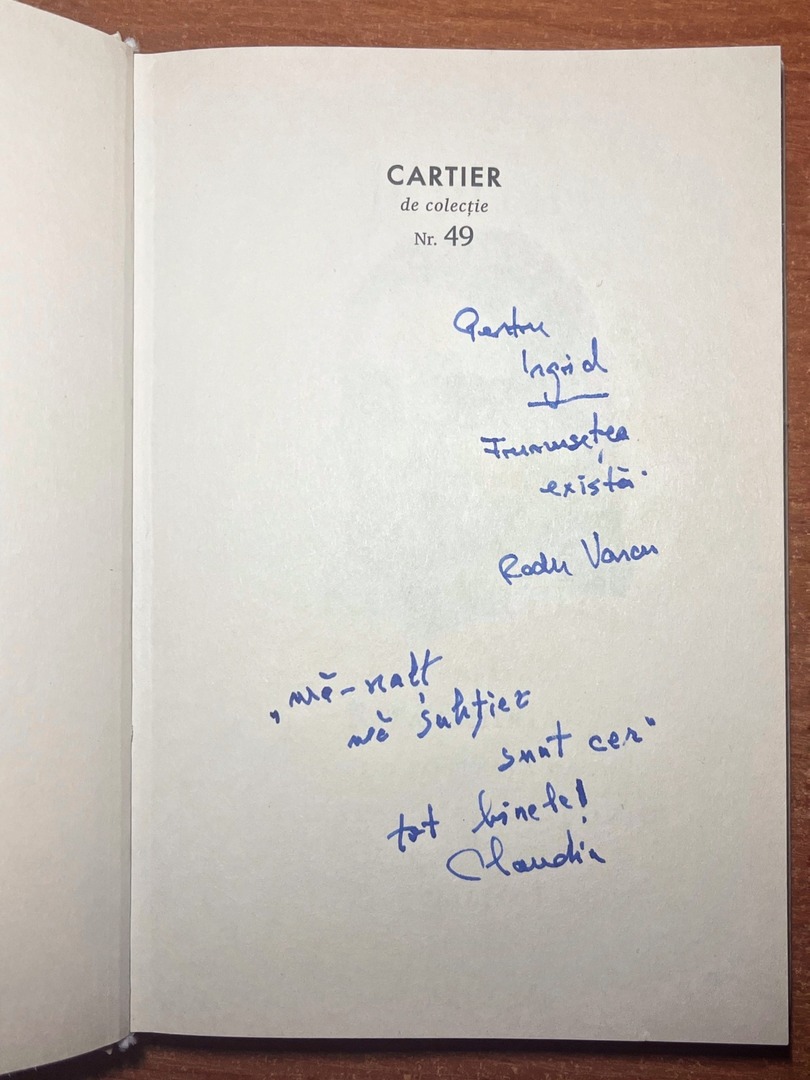 CARTIER
de colecție
Nr. 49
Pentru
Ingrid
Frumusețea
există.
Radu Vancu
„mă-nalț
mă subțiez
sunt cer"
tot binele!
Claudia